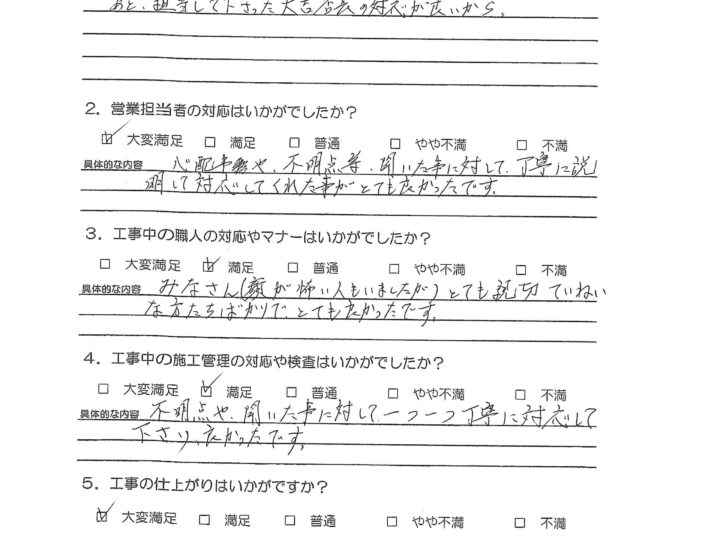 あと、担当して下さった大吉店長の対応が良いから。
2．営業担当者の対応はいかがでしたか？
☑ 大変満足 □ 満足 □ 普通 □ やや不満 □ 不満
具体的な内容 心配事や、不明点等、聞いた事に対して、丁寧に説
明して対応してくれた事がとても良かったです。
3．工事中の職人の対応やマナーはいかがでしたか？
□ 大変満足 ☑ 満足 □ 普通 □ やや不満 □ 不満
具体的な内容 みなさん(顔が怖い人もいましたが)とても親切 ていねい
な方たちばかりで とても良かったです。
4．工事中の施工管理の対応や検査はいかがでしたか？
□ 大変満足 ☑ 満足 □ 普通 □ やや不満 □ 不満
具体的な内容 不明点や、聞いた事に対して、一つ一つ丁寧に対応して
下さり、良かったです。
5．工事の仕上がりはいかがですか？
☑ 大変満足 □ 満足 □ 普通 □ やや不満 □ 不満